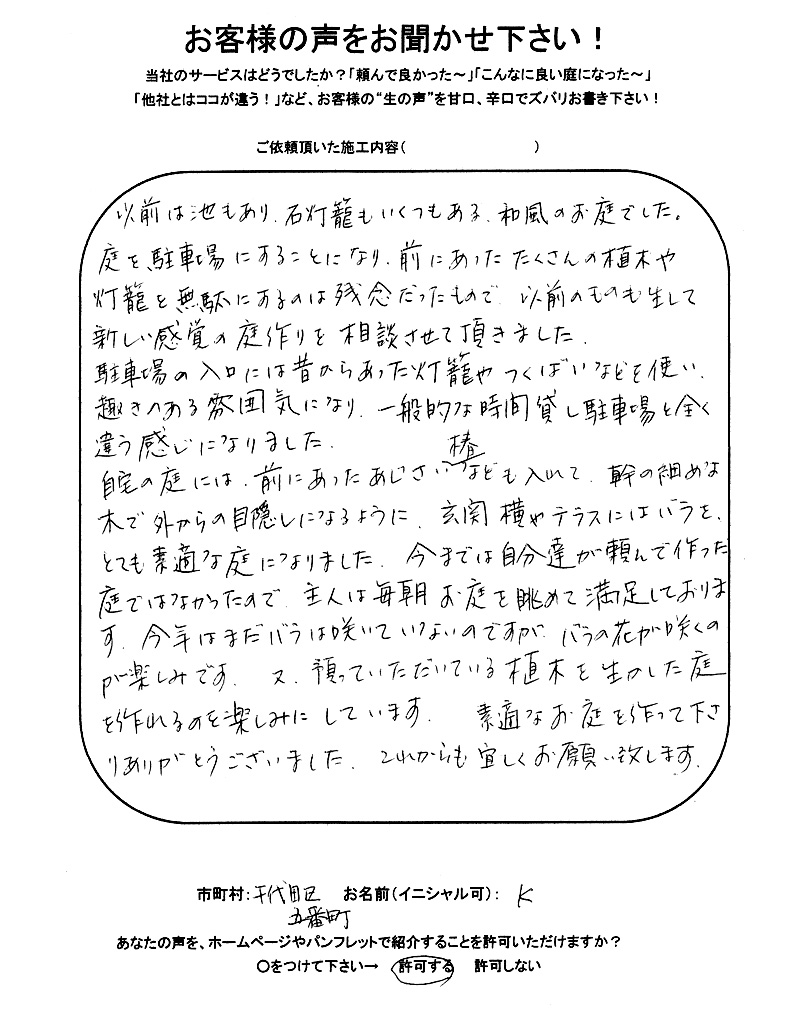 お客様の声をお聞かせ下さい！
当社のサービスはどうでしたか？「頼んで良かった～」「こんなに良い庭になった～」
「他社とはココが違う！」など、お客様の“生の声”を甘口、辛口でズバリお書き下さい！
ご依頼頂いた施工内容（　　　　　　　　　）
以前は池もあり、石灯籠もいくつもある、和風のお庭でした。
庭を駐車場にすることになり、前にあったたくさんの植木や
灯籠を無駄にするのは残念だったもので、以前のものも生して
新しい感覚の庭作りを相談させて頂きました。
駐車場の入口には昔からあった灯籠やつくばいなどを使い、
趣きのある雰囲気になり、一般的な時間貸し駐車場と全く
違う感じになりました。
自宅の庭には、前にあったあじさい椿なども入れて、幹の細めな
木で外からの目隠しになるように、玄関横やテラスにはバラを、
とても素適な庭になりました。今までは自分達が頼んで作った
庭ではなかったので、主人は毎朝お庭を眺めて満足しておりま
す。今年はまだバラは咲いていないのですが、バラの花が咲くの
が楽しみです。又、預っていただいている植木を生かした庭
を作れるのを楽しみにしています。　素適なお庭を作って下さ
りありがとうございました。これからも宜しくお願い致します。
市町村：千代田区　お名前（イニシャル可）：　K
五番町
あなたの声を、ホームページやパンフレットで紹介することを許可いただけますか？
〇をつけて下さい→　許可する　許可しない